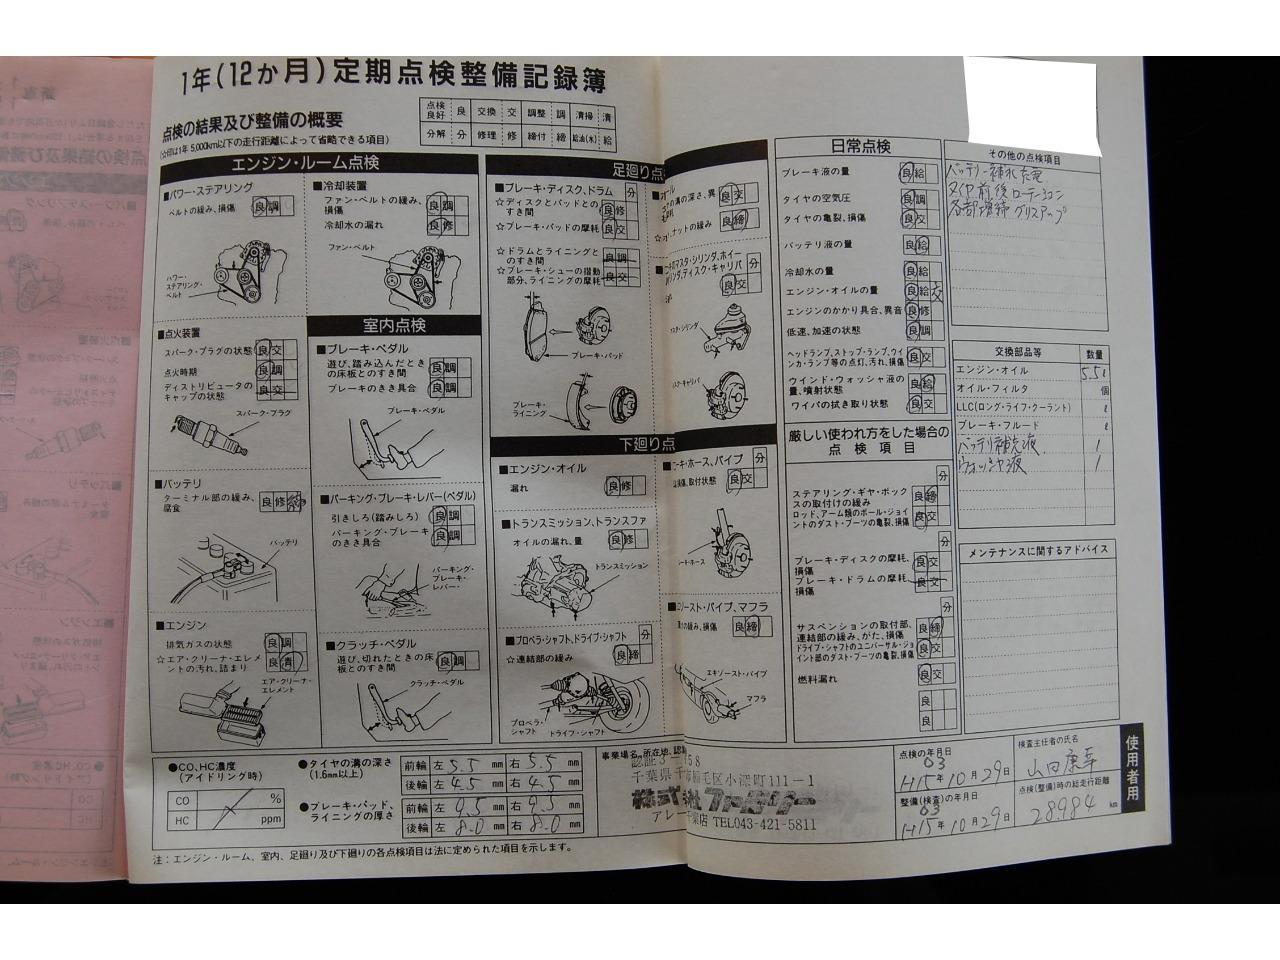 1年(12か月)定期点検整備記録簿
点検の結果及び整備の概要
(☆印は1年 5,000km以下の走行距離によって省略できる項目)
点検良好 良 交換 交 調整 調 清掃 清
分解 分 修理 修 締付 締 給油(水) 給
エンジン・ルーム点検
■パワー・ステアリング
ベルトの緩み、損傷 良 調
パワー・ステアリング・ベルト
■冷却装置
ファン・ベルトの緩み、損傷 良 調
冷却水の漏れ 良 修
ファン・ベルト
■点火装置
スパーク・プラグの状態 良 交
点火時期 良 調
ディストリビュータのキャップの状態 良 交
スパーク・プラグ
■バッテリ
ターミナル部の緩み、腐食 良 修
バッテリ
■エンジン
排気ガスの状態 良 調
☆エア・クリーナ・エレメントの汚れ、詰まり 良 清
エア・クリーナ・エレメント
室内点検
■ブレーキ・ペダル
遊び、踏み込んだときの床板とのすき間 良 調
ブレーキのきき具合 良 調
ブレーキ・ペダル
■パーキング・ブレーキ・レバー(ペダル)
引きしろ(踏みしろ) 良 調
パーキング・ブレーキのきき具合 良 調
パーキング・ブレーキ・レバー
■クラッチ・ペダル
遊び、切れたときの床板とのすき間 良 調
クラッチ・ペダル
足廻り点
■ブレーキ・ディスク、ドラム 分
☆ディスクとパッドとのすき間 良 修
☆ブレーキ・パッドの摩耗 良 交
☆ドラムとライニングとのすき間 良 調
☆ブレーキ・シューの摺動部分、ライニングの摩耗 良 交
ブレーキ・パッド
ブレーキ・ライニング
の溝の深さ、異 良 交
ナットの緩み 良 締
のマスタ・シリンダ、ホイー
リンダ、ディスク・キャリパ 分
良 交
スタ・シリンダ
スク・キャリパ
下廻り点
■エンジン・オイル
漏れ 良 修
■トランスミッション、トランスファ
オイルの漏れ、量 良 修
トランスミッション
■プロペラ・シャフト、ドライブ・シャフト 分
☆連結部の緩み 良 締
プロペラ・シャフト
ドライブ・シャフト
ーキ・ホース、パイプ 分
損傷、取付状態 良 交
ートホース
ゾースト・パイプ、マフラ
の緩み、損傷 良 締
エキゾースト・パイプ
マフラ
日常点検
ブレーキ液の量 良 給
タイヤの空気圧 良 調
タイヤの亀裂、損傷 良 交
バッテリ液の量 良 給
冷却水の量 良 給
エンジン・オイルの量 良 給 交
エンジンのかかり具合、異音 良 修
低速、加速の状態 良 調
ヘッドランプ、ストップ・ランプ、ウインカ・ランプ等の点灯、汚れ、損傷 良 交
ウインド・ウォッシャ液の量、噴射状態 良 給
ワイパの拭き取り状態 良 交
厳しい使われ方をした場合の点検項目
分
ステアリング・ギヤ・ボックスの取付けの緩み 良 締
ロッド、アーム類のボール・ジョイントのダスト・ブーツの亀裂、損傷 良 交
分
ブレーキ・ディスクの摩耗、損傷 良 交
ブレーキ・ドラムの摩耗、損傷 良 交
分
サスペンションの取付部、連結部の緩み、がた、損傷 良 締
ドライブ・シャフトのユニバーサル・ジョイント部のダスト・ブーツの亀裂、損傷 良 交
燃料漏れ 良 交
良
良
その他の点検項目
バッテリー補水充電
タイヤ前後ローテーション
各部増締 グリスアップ
交換部品等 数量
エンジン・オイル 5.5ℓ
オイル・フィルタ 個
LLC(ロング・ライフ・クーラント) ℓ
ブレーキ・フルード ℓ
バッテリ補充液 1
ウォッシャ液 1
メンテナンスに関するアドバイス
●CO、HC濃度
(アイドリング時)
CO %
HC ppm
●タイヤの溝の深さ
(1.6mm以上)
前輪 左 5.5 mm 右 5.5 mm
後輪 左 4.5 mm 右 4.5 mm
●ブレーキ・パッド、ライニングの厚さ
前輪 左 9.5 mm 右 9.5 mm
後輪 左 8.0 mm 右 8.0 mm
事業場名、所在地、認
認証3-
千葉県千 稲毛区小深町111-1
株式会社ファミリー
アレー 千葉店 TEL043-421-5811
点検の年月日
03
H15年10月29日
整備(検査)の年月日
03
H15年10月29日
検査主任者の氏名
山田康幸
点検(整備)時の総走行距離
28984 km
使用者用
注:エンジン・ルーム、室内、足廻り及び下廻りの各点検項目は法に定められた項目を示します。